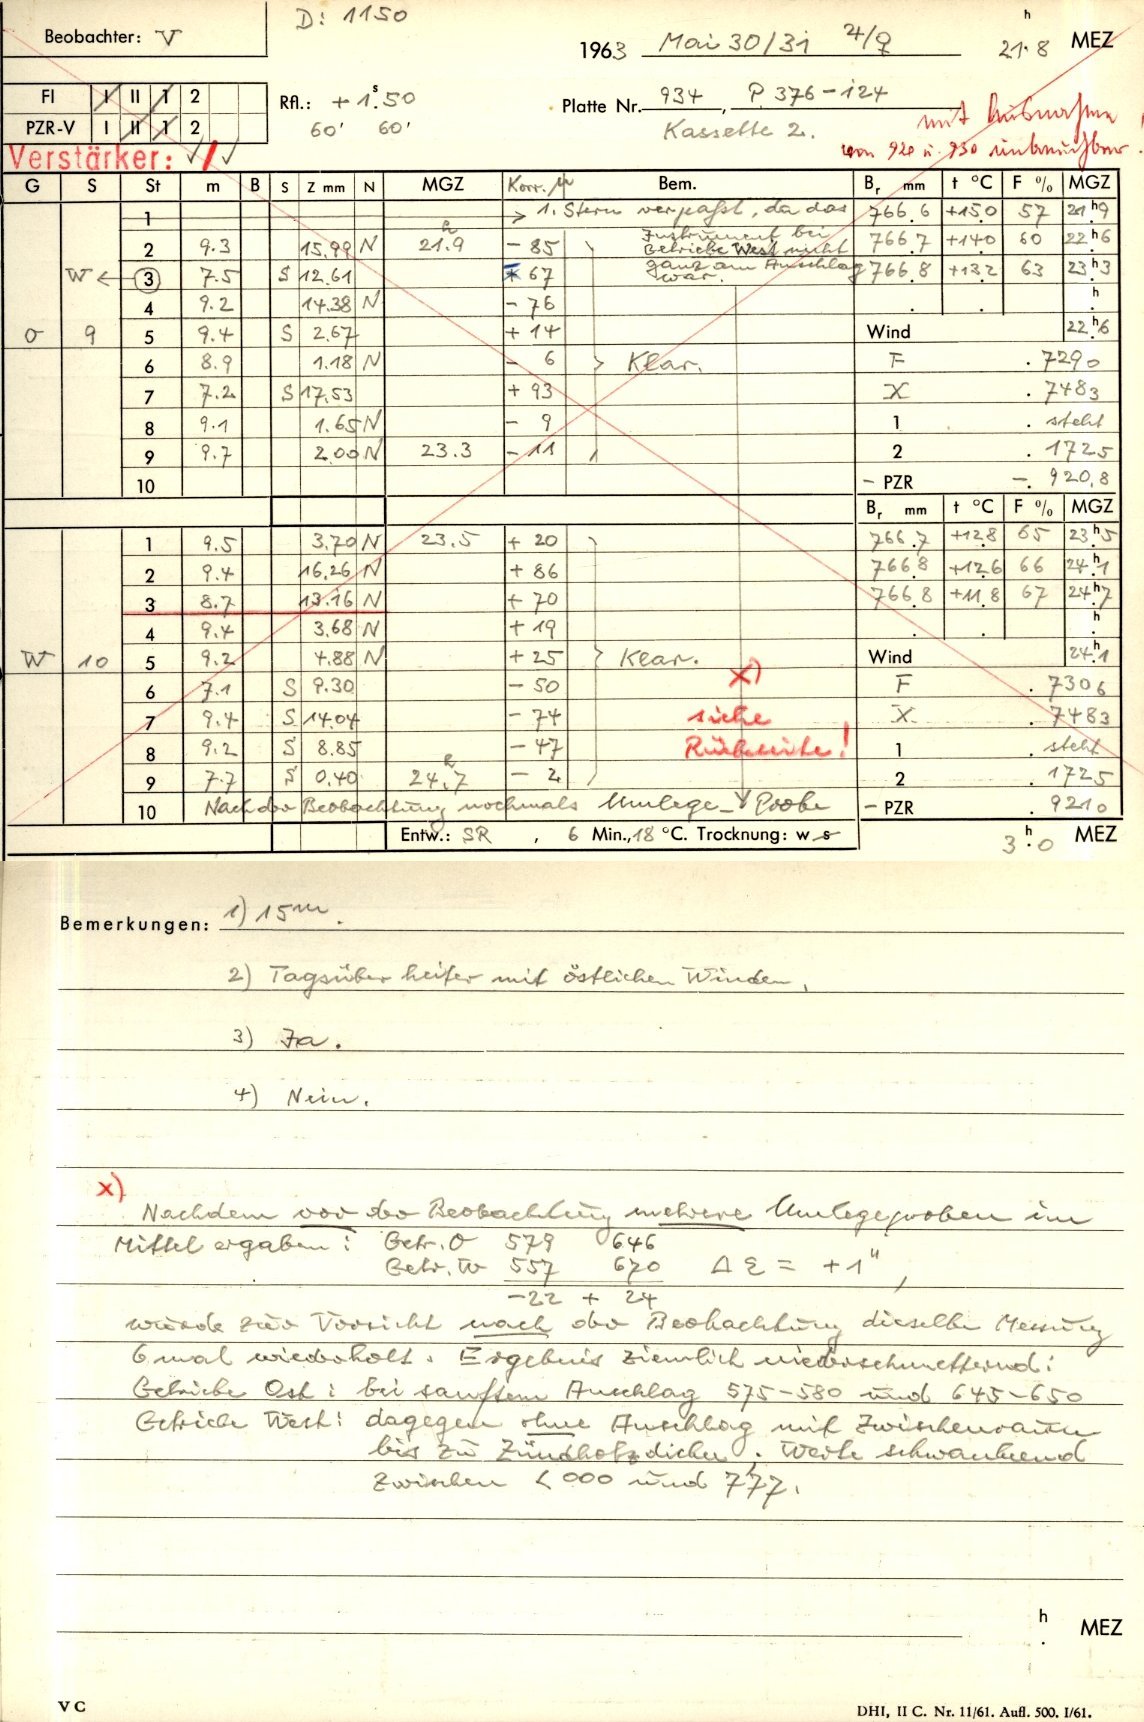 D: 1150
Beobachter: V
1963 Mai 30/31 ♃/♀ 21h.8 MEZ
FI I II 1 2
PZR-V I II 1 2
Rfl.: +1s.50
60' 60'
Platte Nr. 934, P. 376-124
Kassette 2.
mit Ausnahme
von 920 u. 930 unbrauchbar.
Verstärker: ✓ / ✓
G S St m B S Z mm N MGZ Korr. μ Bem. Br mm t °C F % MGZ
1 > 1. Stern verpaßt, da das 766.6 +15.0 57 21h.9
Instrument bei
2 9.3 15.99 N 21h.9 - 85 Betriebe West nicht 766.7 +14.0 60 22h.6
ganz am Anschlag
W ← 3 7.5 S 12.61 * 67 war. 766.8 +13.2 63 23h.3
4 9.2 14.38 N - 76 . . h.
O 9 5 9.4 S 2.67 + 14 Wind 22h.6
6 8.9 1.18 N - 6 > Klar. F . 7290
7 7.2 S 17.53 + 93 X . 7483
8 9.1 1.65 N - 9 1 . steht
9 9.7 2.00 N 23.3 - 11 2 . 1725
10 - PZR -. 920,8
Br mm t °C F % MGZ
1 9.5 3.70 N 23.5 + 20 766.7 +12.8 65 23h.5
2 9.4 16.26 N + 86 766.8 +12.6 66 24h.1
3 8.7 13.16 N + 70 766.8 +11.8 67 24h.7
4 9.4 3.68 N + 19 . . h.
W 10 5 9.2 4.88 N + 25 > Klar. Wind 24h.1
6 7.1 S 9.30 - 50 x) F . 7306
7 9.4 S 14.04 - 74 siehe X . 7483
8 9.2 S 8.85 - 47 Rückseite! 1 . steht
9 7.7 S 0.40 24h.7 - 2 2 . 1725
10 Nach der Beobachtung nochmals Umlege-Probe - PZR . 9210
Entw.: SR , 6 Min., 18 °C. Trocknung: w s 3h.0 MEZ
Bemerkungen: 1) 15m.
2) Tagsüber heiter mit östlichen Winden.
3) Ja.
4) Nein.
x)
Nachdem vor der Beobachtung mehrere Umlegeproben im
Mittel ergaben: Getr. O 579 646
Getr. W 557 670 Δ ξ = +1",
-22 + 24
wurde zur Vorsicht nach der Beobachtung dieselbe Messung
6 mal wiederholt. Ergebnis ziemlich niederschmetternd:
Getriebe Ost: bei sanftem Anschlag 575-580 und 645-650
Getriebe West: dagegen ohne Anschlag mit Zwischenraum
bis zu Zündholzdicke. Werte schwankend
zwischen < 000 und 777.
h. MEZ
V C
DHI, II C. Nr. 11/61. Aufl. 500. I/61.